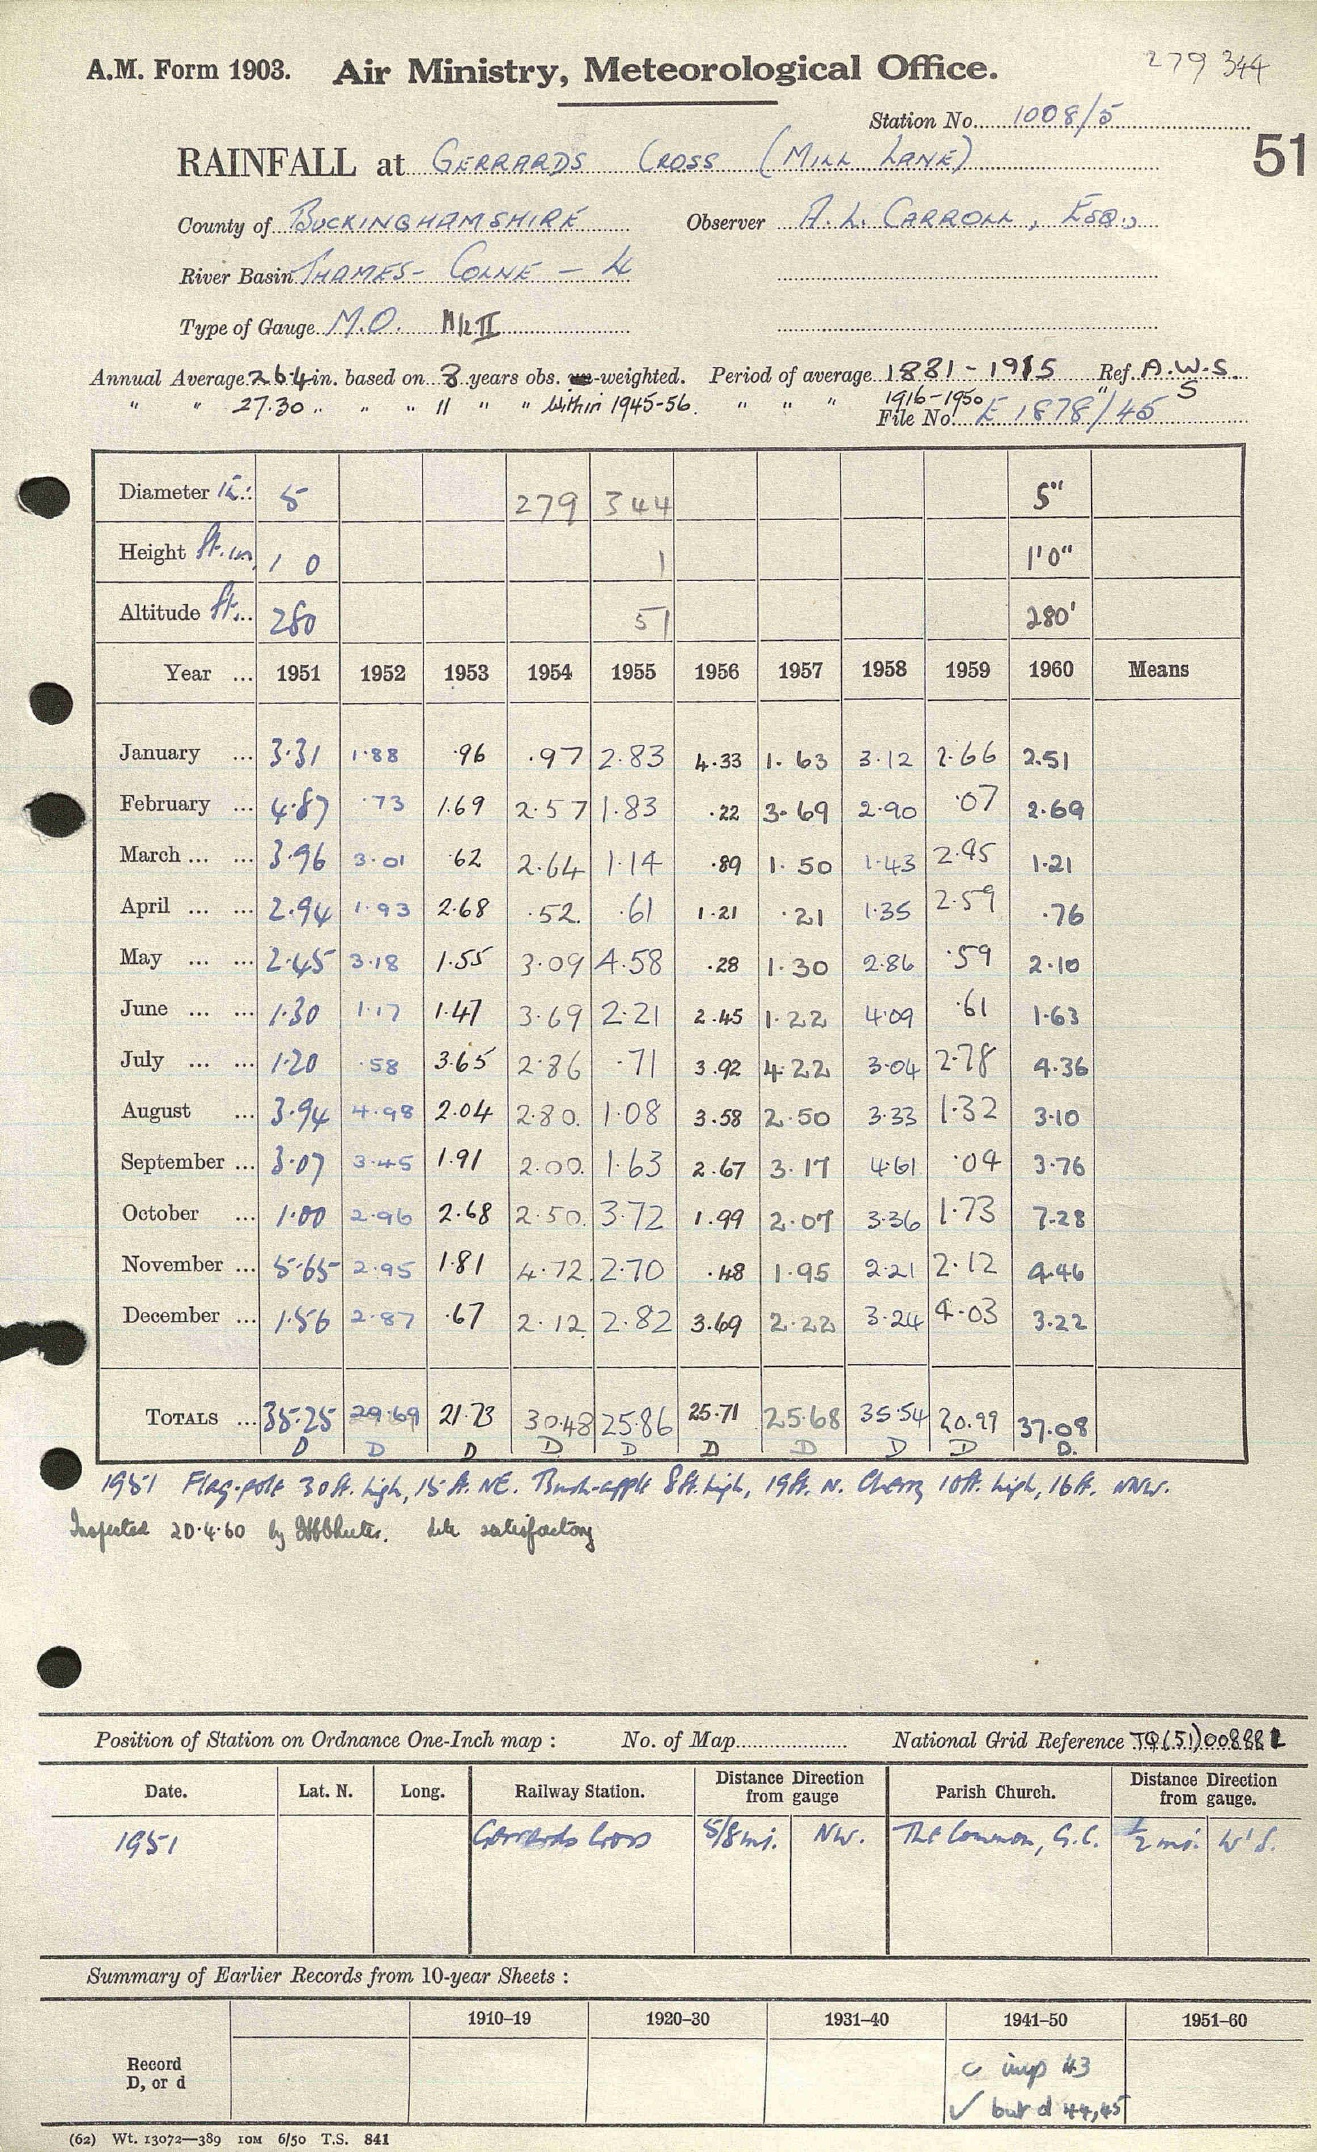 279 344
A.M. Form 1903. Air Ministry, Meteorological Office.
Station No. 1008/5
51
RAINFALL at GERRARDS CROSS (MILL LANE)
County of BUCKINGHAMSHIRE Observer A. L. CARROLL, ESQ.,
River Basin THAMES - COLNE - 4
Type of Gauge M.O. Mk II
Annual Average 26.4 in. based on 8 years obs. -weighted. Period of average 1881-1915 Ref. A.W.S.
" " 27.30 " " " 11 " " " within 1945-56. " " " 1916-1950 " S
File No. E 1878/45
Diameter in. 5 279 344 5"
Height ft. in. 1 0 1 1'0"
Altitude ft. 280 51 280'
Year ... 1951 1952 1953 1954 1955 1956 1957 1958 1959 1960 Means
January ... 3.31 1.88 .96 .97 2.83 4.33 1.63 3.12 2.66 2.51
February ... 4.87 .73 1.69 2.57 1.83 .22 3.69 2.90 .07 2.69
March ... ... 3.96 3.01 .62 2.64 1.14 .89 1.50 1.43 2.45 1.21
April ... ... 2.94 1.93 2.68 .52 .61 1.21 .21 1.35 2.59 .76
May ... ... 2.45 3.18 1.55 3.09 4.58 .28 1.30 2.86 .59 2.10
June ... ... 1.30 1.17 1.47 3.69 2.21 2.45 1.22 4.09 .61 1.63
July ... ... 1.20 .58 3.65 2.86 .71 3.92 4.22 3.04 2.78 4.36
August ... 3.94 4.98 2.04 2.80 1.08 3.58 2.50 3.33 1.32 3.10
September ... 3.07 3.45 1.91 2.00 1.63 2.67 3.17 4.61 .04 3.76
October ... 1.00 2.96 2.68 2.50 3.72 1.99 2.07 3.36 1.73 7.28
November ... 5.65 2.95 1.81 4.72 2.70 .48 1.95 2.21 2.12 4.46
December ... 1.56 2.87 .67 2.12 2.82 3.69 2.22 3.24 4.03 3.22
TOTALS ... 35.25 29.69 21.73 30.48 25.86 25.71 25.68 35.54 20.99 37.08
D D D D D D D D D D.
1951 Flag-pole 30ft. high, 15ft. NE. Bush-apple 8ft. high, 19ft. N. Cherry 10ft. high, 16ft. NNW.
Inspected 20.4.60 by site satisfactory
Position of Station on Ordnance One-Inch map : No. of Map National Grid Reference TQ(51)008882
Date. Lat. N. Long. Railway Station. Distance Direction from gauge Parish Church. Distance Direction from gauge.
1951 Gerrards Cross 5/8 mi. NW. The Common, G.C. 1/2 mi. W'S.
Summary of Earlier Records from 10-year Sheets :
1910–19 1920–30 1931–40 1941–50 1951–60
Record D, or d
c imp 43
✓ but d 44,45
(62) Wt. 13072—389 10M 6/50 T.S. 841